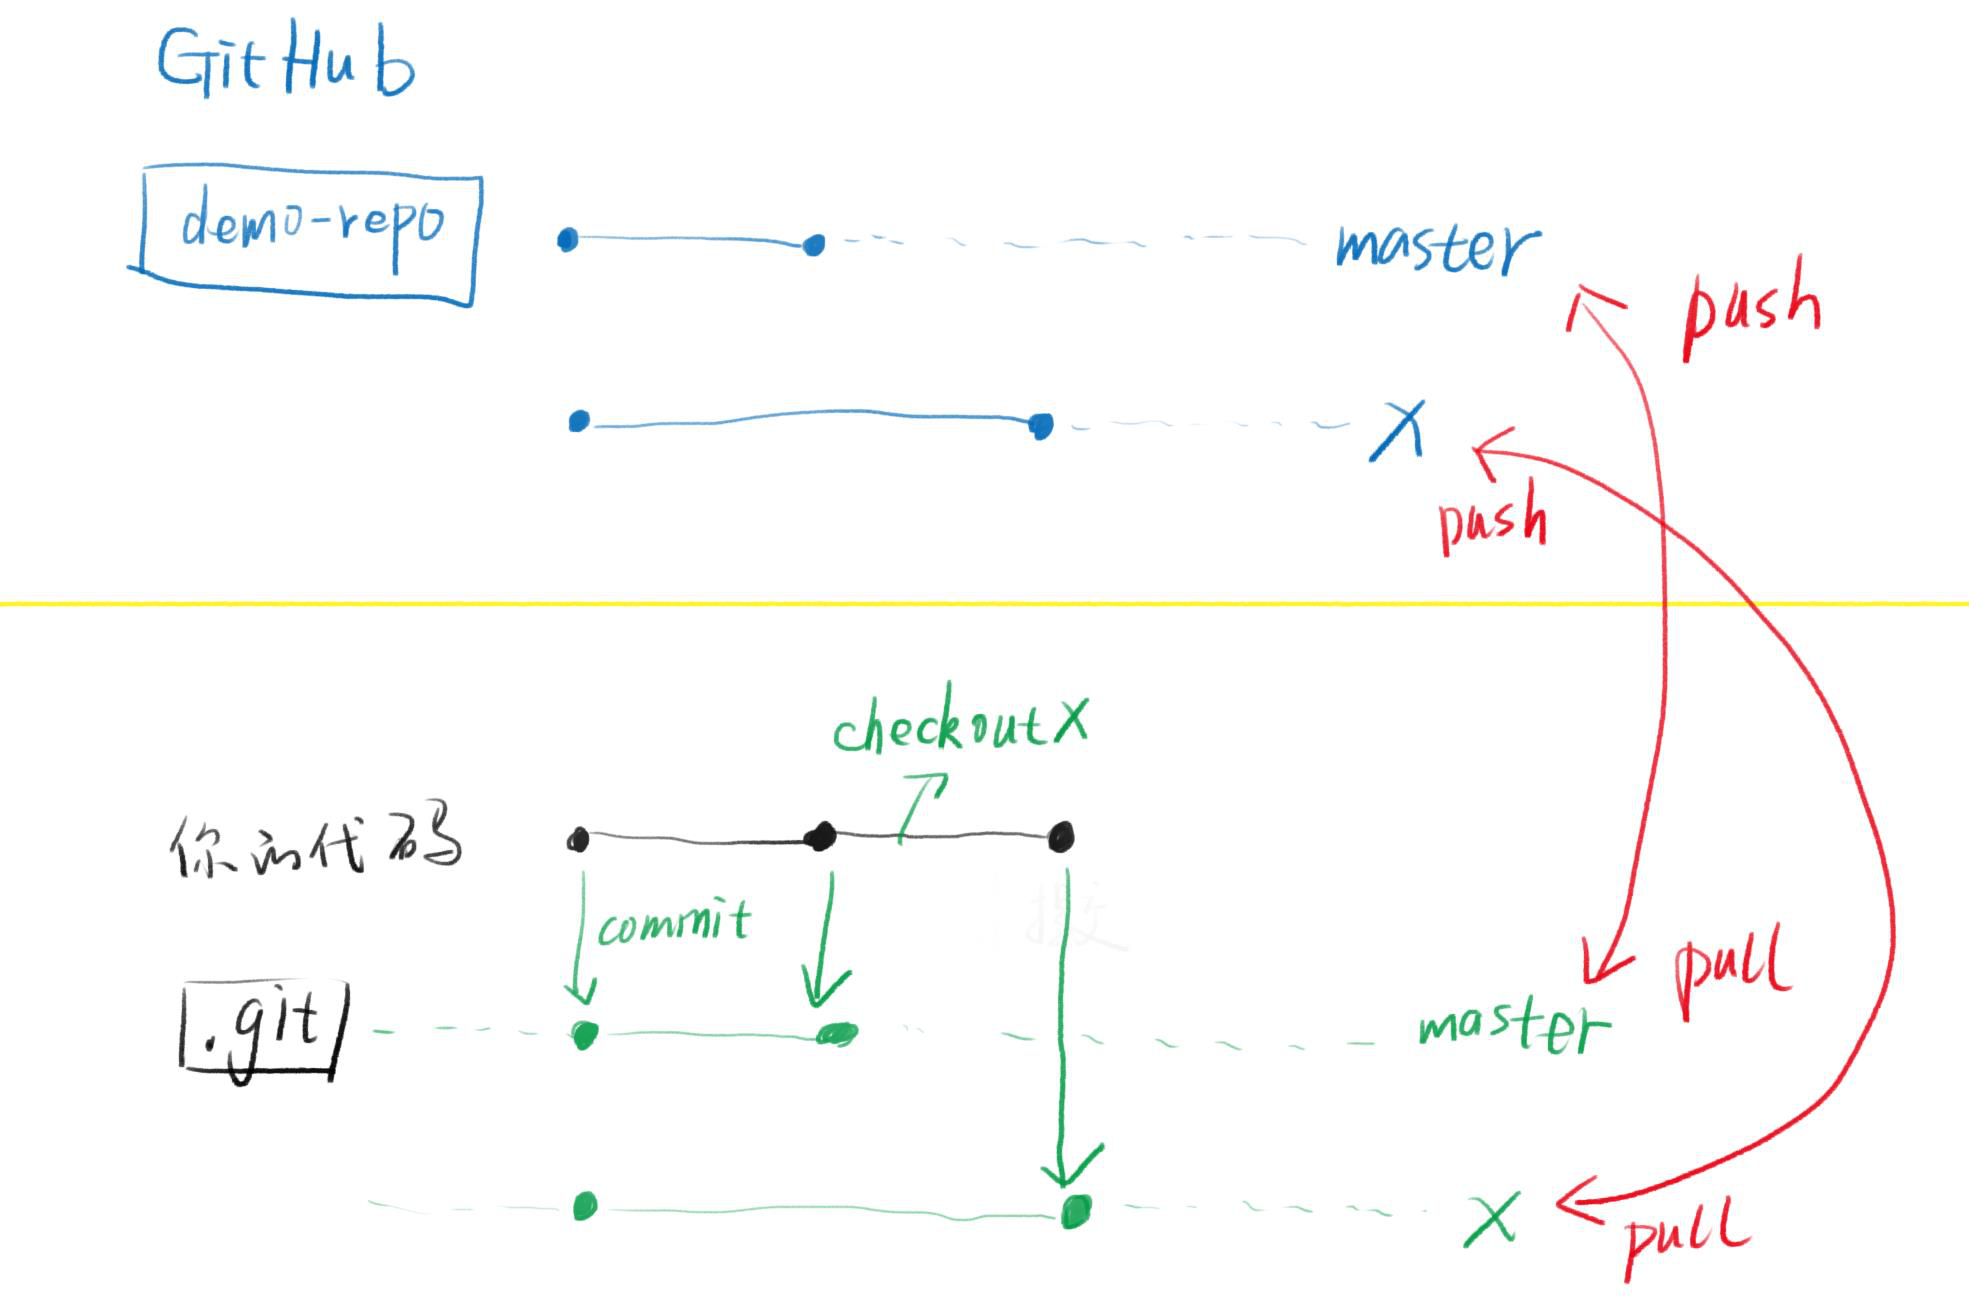 GitHub
demo-repo
master
push
X
push
checkout X
你的代码
commit
.git
master
pull
X
pull